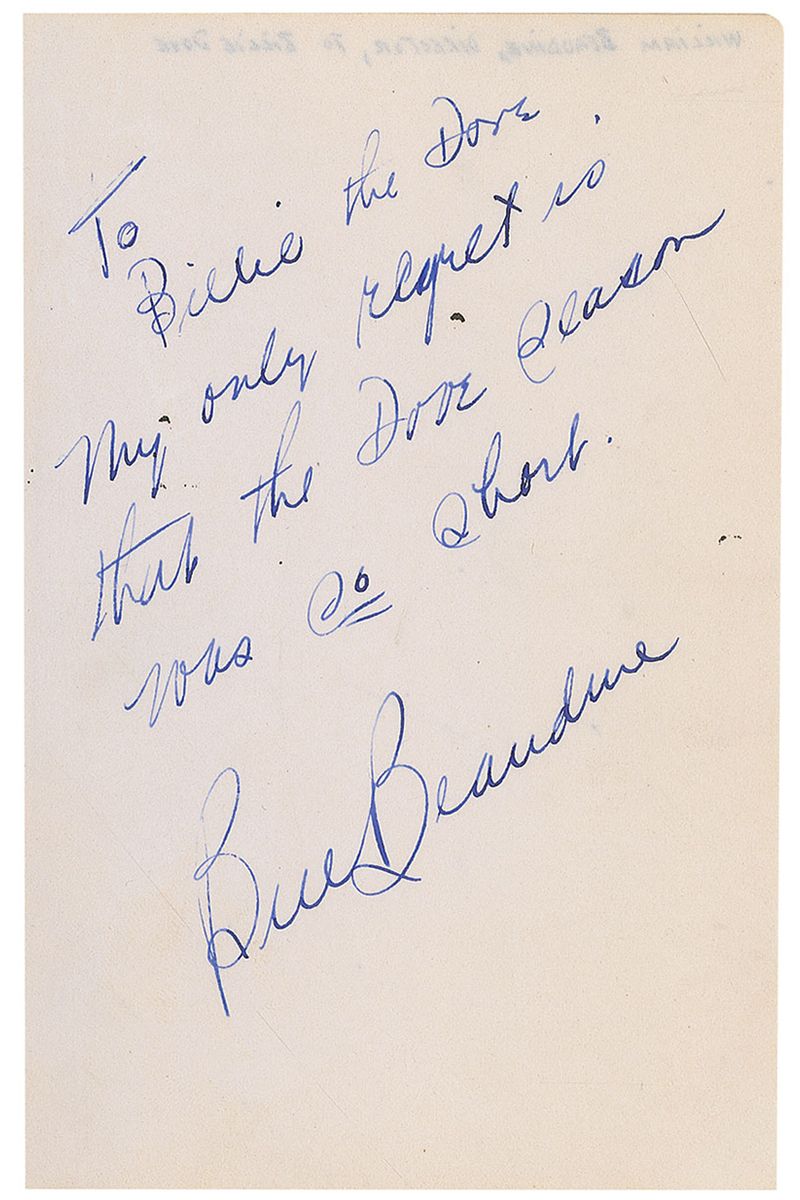 WILLIAM BEAUDINE, DIRECTOR, TO BILLIE DOVE
To
Billie the Dove.
My only regret is
that the Dove season
was so short.
Bill Beaudine